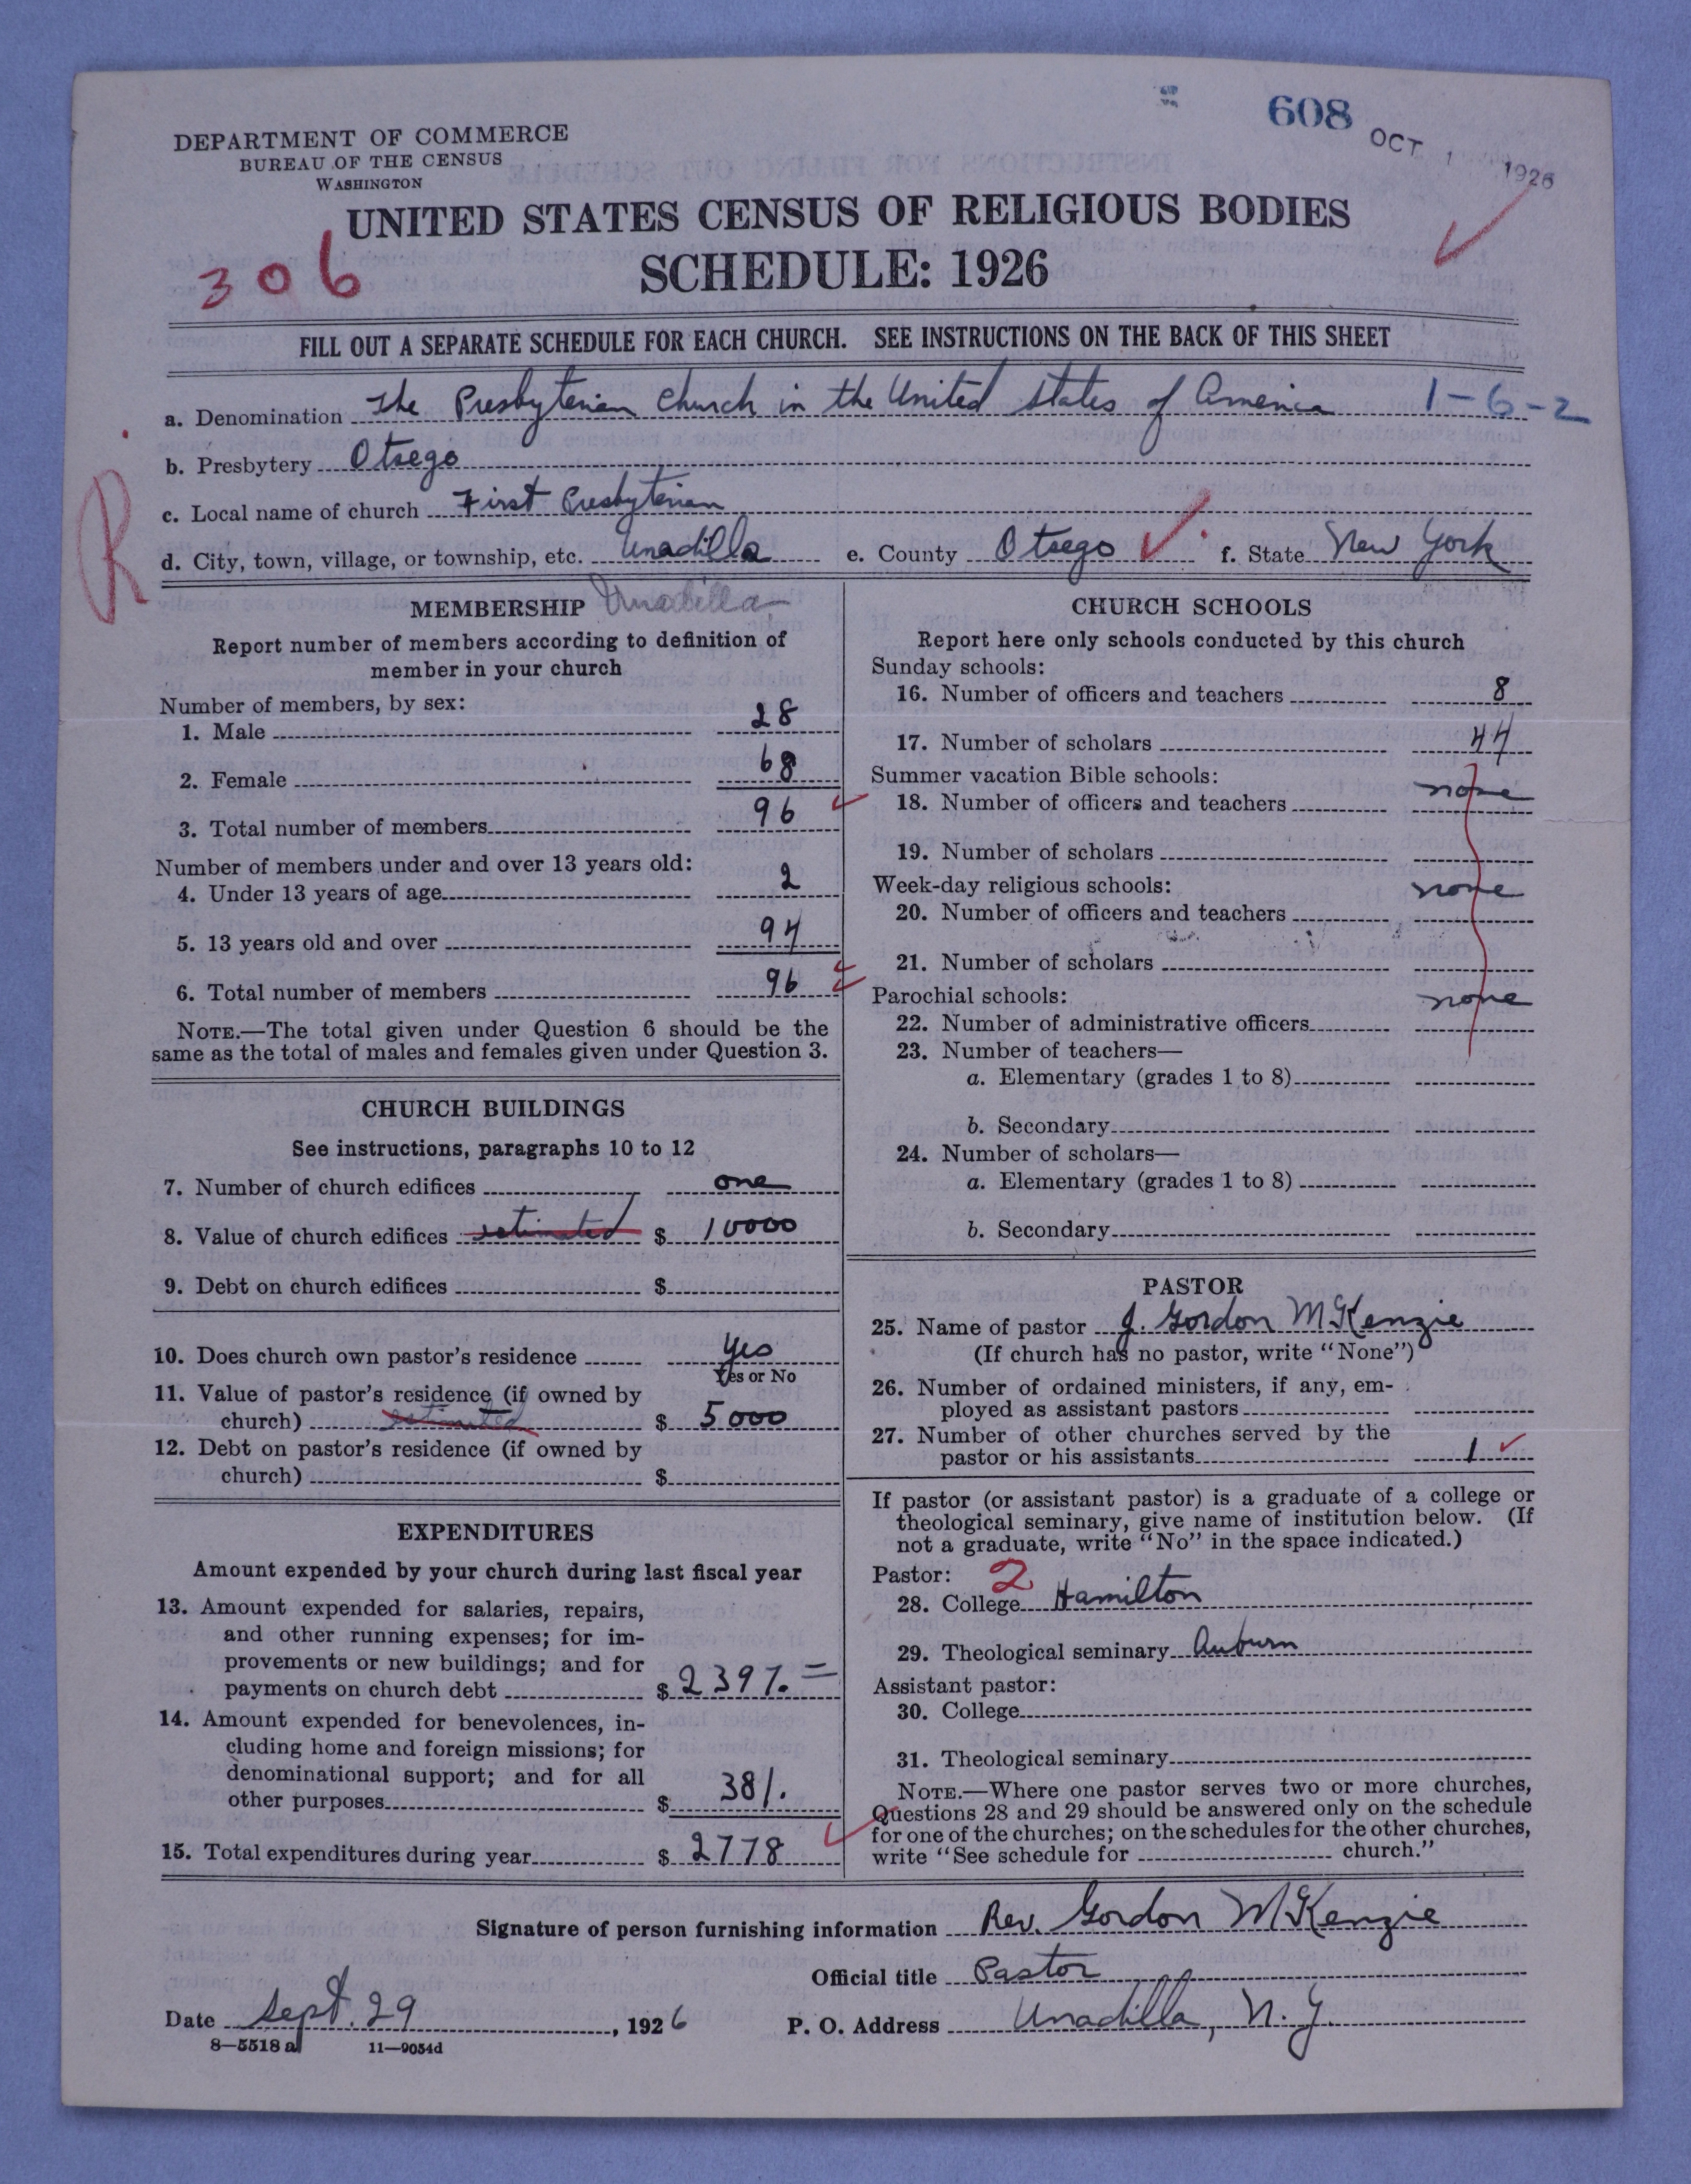 608
OCT 1 1926
DEPARTMENT OF COMMERCE
BUREAU OF THE CENSUS
WASHINGTON
UNITED STATES CENSUS OF RELIGIOUS BODIES
SCHEDULE: 1926
306
FILL OUT A SEPARATE SCHEDULE FOR EACH CHURCH. SEE INSTRUCTIONS ON THE BACK OF THIS SHEET
a. Denomination The Presbyterian Church in the United States of America 1-6-2
b. Presbytery Otsego
R
c. Local name of church First Presbyterian
d. City, town, village, or township, etc. Unadilla e. County Otsego f. State New York
MEMBERSHIP Unadilla
Report number of members according to definition of
member in your church
Number of members, by sex:
1. Male 28
2. Female 68
3. Total number of members 96
Number of members under and over 13 years old:
4. Under 13 years of age 2
5. 13 years old and over 94
6. Total number of members 96
NOTE.—The total given under Question 6 should be the
same as the total of males and females given under Question 3.
CHURCH BUILDINGS
See instructions, paragraphs 10 to 12
7. Number of church edifices one
8. Value of church edifices estimated $ 10000
9. Debt on church edifices $
10. Does church own pastor's residence yes
Yes or No
11. Value of pastor's residence (if owned by
church) estimated $ 5000
12. Debt on pastor's residence (if owned by
church) $
EXPENDITURES
Amount expended by your church during last fiscal year
13. Amount expended for salaries, repairs,
and other running expenses; for im-
provements or new buildings; and for
payments on church debt $ 2397.=
14. Amount expended for benevolences, in-
cluding home and foreign missions; for
denominational support; and for all
other purposes $ 381.
15. Total expenditures during year $ 2778
CHURCH SCHOOLS
Report here only schools conducted by this church
Sunday schools:
16. Number of officers and teachers 8
17. Number of scholars 44
Summer vacation Bible schools:
18. Number of officers and teachers none
19. Number of scholars
Week-day religious schools:
20. Number of officers and teachers none
21. Number of scholars
Parochial schools:
22. Number of administrative officers none
23. Number of teachers—
a. Elementary (grades 1 to 8)
b. Secondary
24. Number of scholars—
a. Elementary (grades 1 to 8)
b. Secondary
PASTOR
25. Name of pastor J. Gordon McKenzie
(If church has no pastor, write "None")
26. Number of ordained ministers, if any, em-
ployed as assistant pastors
27. Number of other churches served by the
pastor or his assistants 1
If pastor (or assistant pastor) is a graduate of a college or
theological seminary, give name of institution below. (If
not a graduate, write "No" in the space indicated.)
Pastor: 2
28. College Hamilton
29. Theological seminary Auburn
Assistant pastor:
30. College
31. Theological seminary
NOTE.—Where one pastor serves two or more churches,
Questions 28 and 29 should be answered only on the schedule
for one of the churches; on the schedules for the other churches,
write "See schedule for church."
Signature of person furnishing information Rev. Gordon McKenzie
Official title Pastor
Date Sept. 29, 1926 P. O. Address Unadilla, N.Y.
8—5518 a 11—9054d